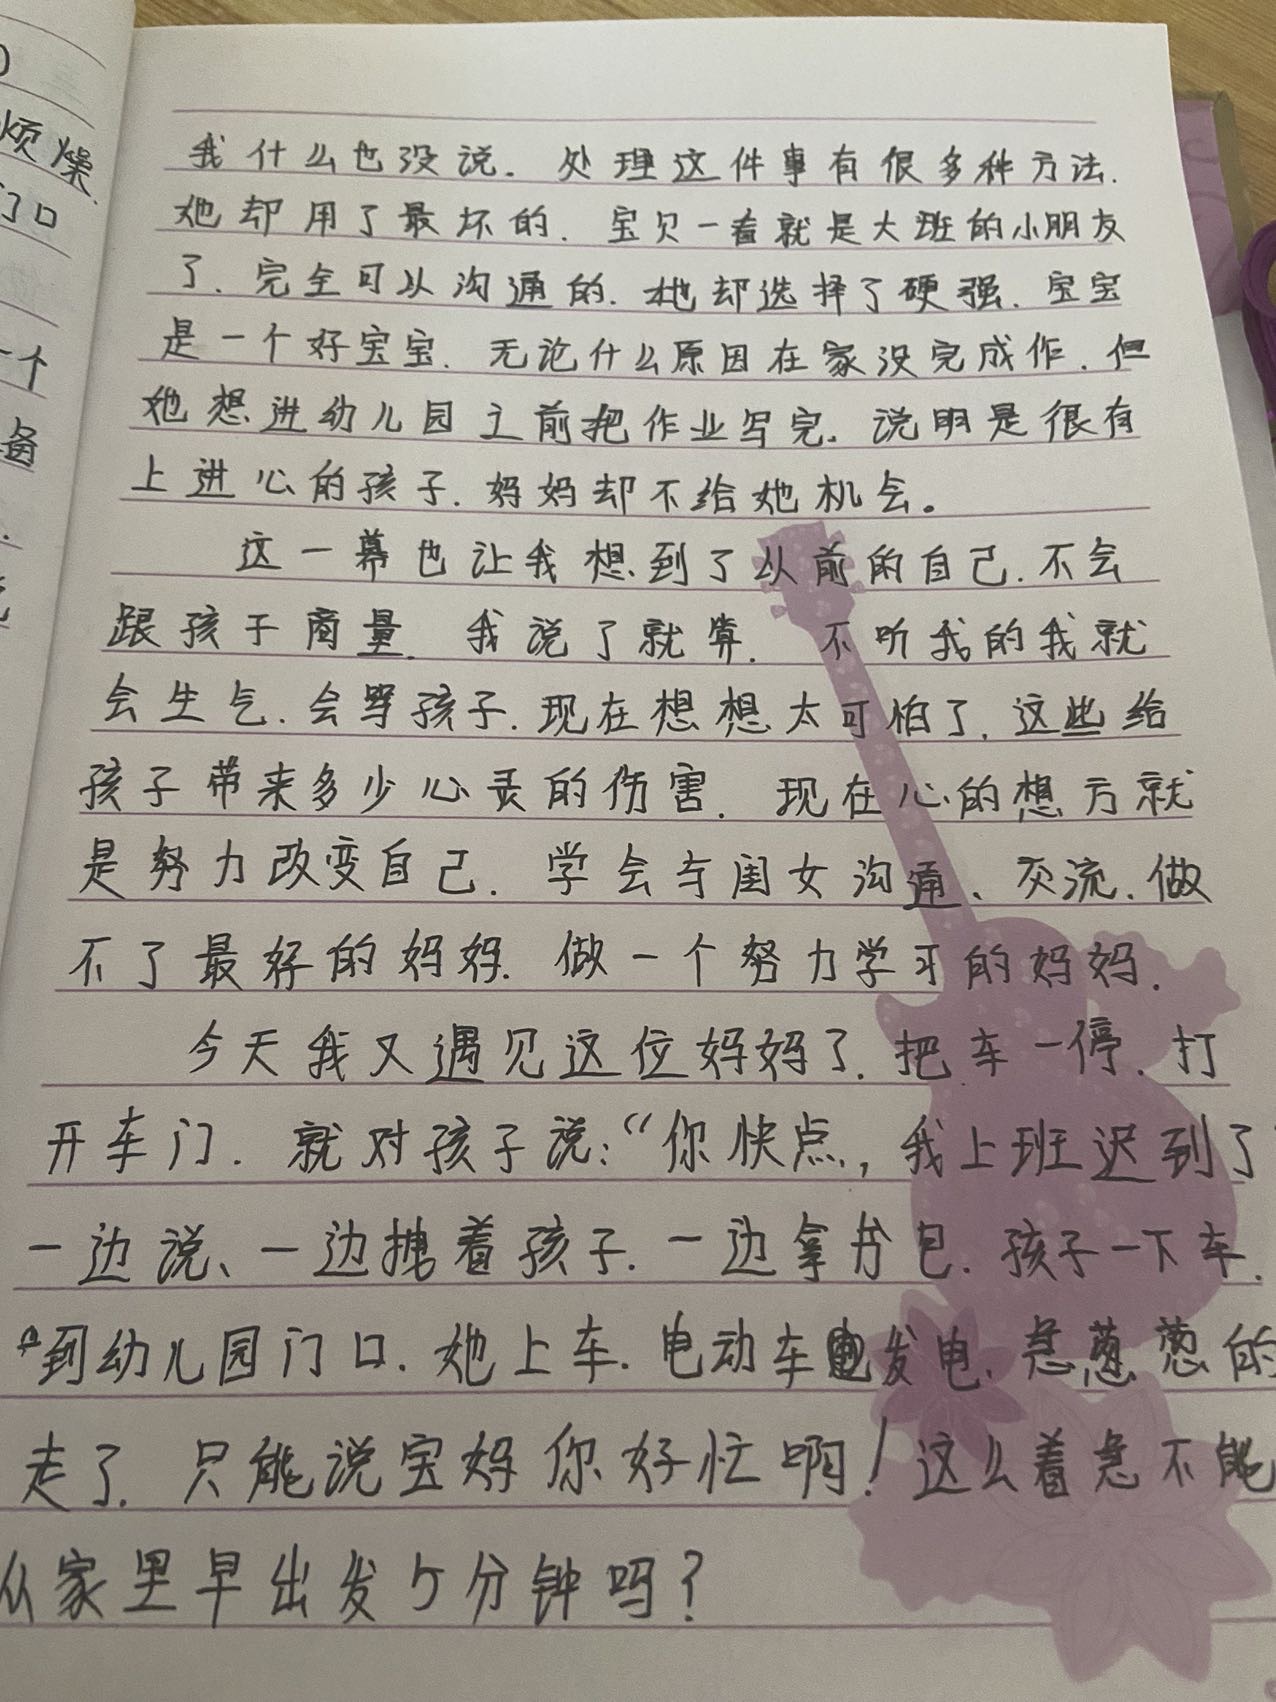 烦燥.
门口
一个
备
我什么也没说. 处理这件事有很多种方法.
她却用了最坏的. 宝贝一看就是大班的小朋友
了. 完全可以沟通的. 她却选择了硬强. 宝宝
是一个好宝宝. 无论什么原因在家没完成作. 但
她想进幼儿园之前把作业写完. 说明是很有
上进心的孩子. 妈妈却不给她机会。
这一幕也让我想到了从前的自己. 不会
跟孩子商量. 我说了就算. 不听我的我就
会生气. 会骂孩子. 现在想想太可怕了. 这些给
孩子带来多少心灵的伤害. 现在心的想方就
是努力改变自己. 学会与闺女沟通、交流. 做
不了最好的妈妈. 做一个努力学习的妈妈.
今天我又遇见这位妈妈了. 把车一停. 打
开车门. 就对孩子说:“你快点, 我上班迟到了”
一边说、一边拽着孩子. 一边拿书包. 孩子一下车.
到幼儿园门口. 她上车. 电动车发电. 急葱葱的
走了. 只能说宝妈你好忙啊! 这么着急不能
从家里早出发5分钟吗?